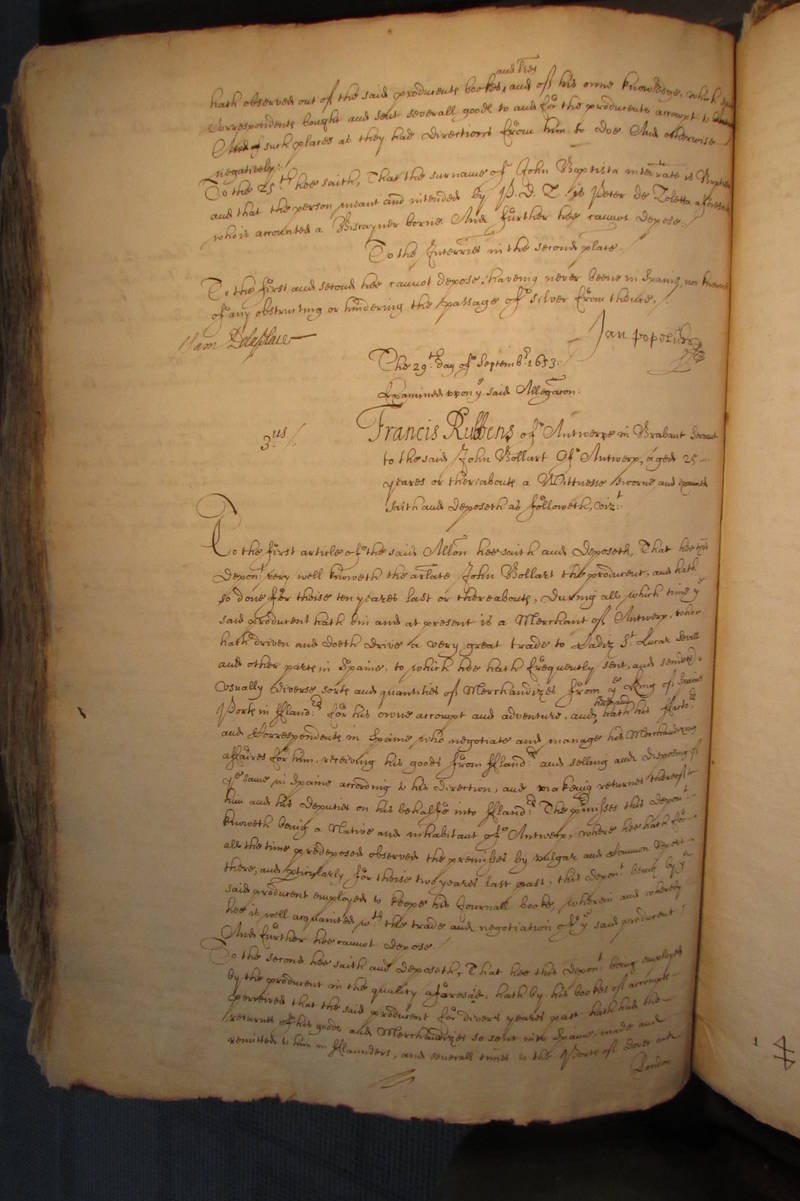 and tres
hath observed out of the said producents bookes, and of his owne knowledge, which
Correspondents bought and sent severall goods to and for the producents accompt to
And of such places as they had directions from him to doe And otherwise
negatively.
To the 25th hee saith, That the surname of John Baptista interrate is
and that the person meant and intended by P. D. Z is Peter de Zoletta aforesaid
who is accounted a Biscayner borne And further hee cannot depose./
To the Interries in the second place.
To the first and second hee cannot depose, haveing never beene in Spaine, nor knowes
of any obstructing or hindering the passage of silver from thence./
Jan
The 29th day of Septembr 1653.
Examined upon ye said Allegacon.
3us/.
Francis Rubbens of Antwerpe in Brabant Servant
to the said John Bollart of Antwerp, aged 25
yeares or thereabouts a Wittnesse sworne and examined
saith and deposeth as followeth, vizt.
To the first article of the said Allon hee saith and deposeth, That hee this
Depont very well knoweth the arlate John Bollart the producent, and hath
so done for theise ten yeares last or thereabouts, during all which time ye
said producent hath bin and at present is a Merchant of Antwerp, who
hath driven and doeth drive a very great trade to Cadiz St Lucar Sevill
and other parts in Spaine, to which hee hath frequently sent, and sendeth
usually diverse sorts and quantities of Merchandizes from ye King of Spaine
Ports in Flandrs for his owne accompt and adventure, and hath his factors
and Correspondents in Spaine who negotiate and manage his Merchandizing
affaires for him, receiving his goods from Flandrs and selling and disposeing of
ye same in Spaine according to his direction, and makeing returnes thereof to
him and his deputies on his behalfe into Flandrs The premisses this depont
knoweth being a Native and inhabitant of Antwerp, where hee hath for
all the time predeposed observed the premisses by vulgar and common report
there, and pticularly for theise two yeares last past, this depont being by ye
said producent employed to keepe his Journall booke, wherein and whereby
hee is well acquainted wth the trade and negotiation of ye said producent
And further hee cannot depose./
To the second hee saith and deposeth, That hee this depont being employed
by the producent in the quality aforesaid, hath by his bookes of accompts
perceived that the said producent for divers yeares past hath had the
returnes of his goods and Merchandizes so sent into Spaine, made and
remitted to him in Flaunders, and severall times to the Ports of Dover and
London